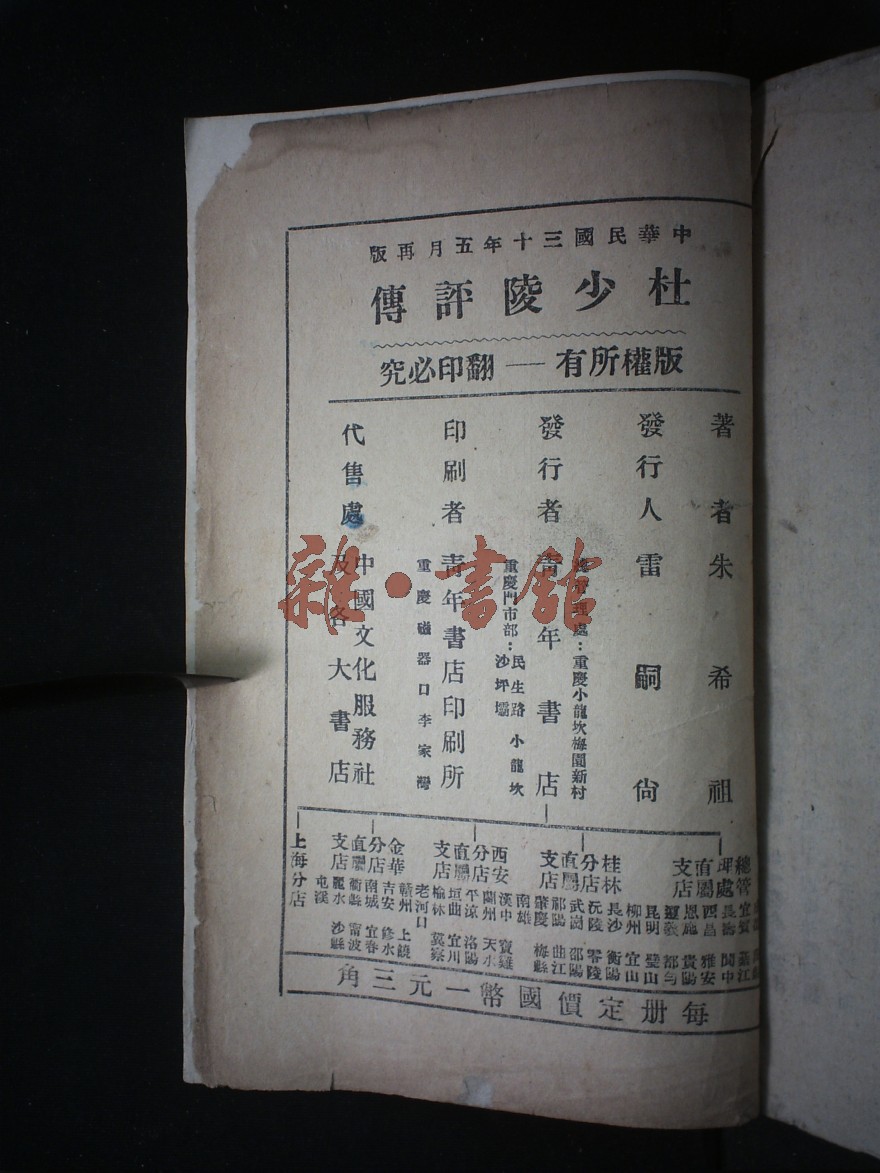 中華民國三十年五月再版
杜少陵評傳
版權所有——翻印必究
著者 朱希祖
發行人 雷嗣尙
發行者 青年書店
總管理處：重慶小龍坎梅園新村
重慶門市部：民生路 小龍坎
沙坪壩
印刷者 青年書店印刷所
重慶磁器口李家灣
代售處 中國文化服務社
及各大書店
總管理處直屬支店
宜賓 綦江
長壽 閬中
西昌 雅安
恩施 貴陽
都勻
昆明 璧山
柳州 宜山
桂林分店直屬支店
長沙 衡陽
沅陵 零陵
武崗 邵陽
祁陽 曲江
肇慶 梅縣
南雄
西安分店直屬支店
漢中 寶雞
蘭州 天水
平涼 洛陽
垣曲 宜川
榆林
老河口
金華分店直屬支店
贛州 上饒
吉安 修水
南城 宜春
衢縣 甯波
麗水 沙縣
屯溪
上海分店
每册定價國幣一元三角
雜·書舘